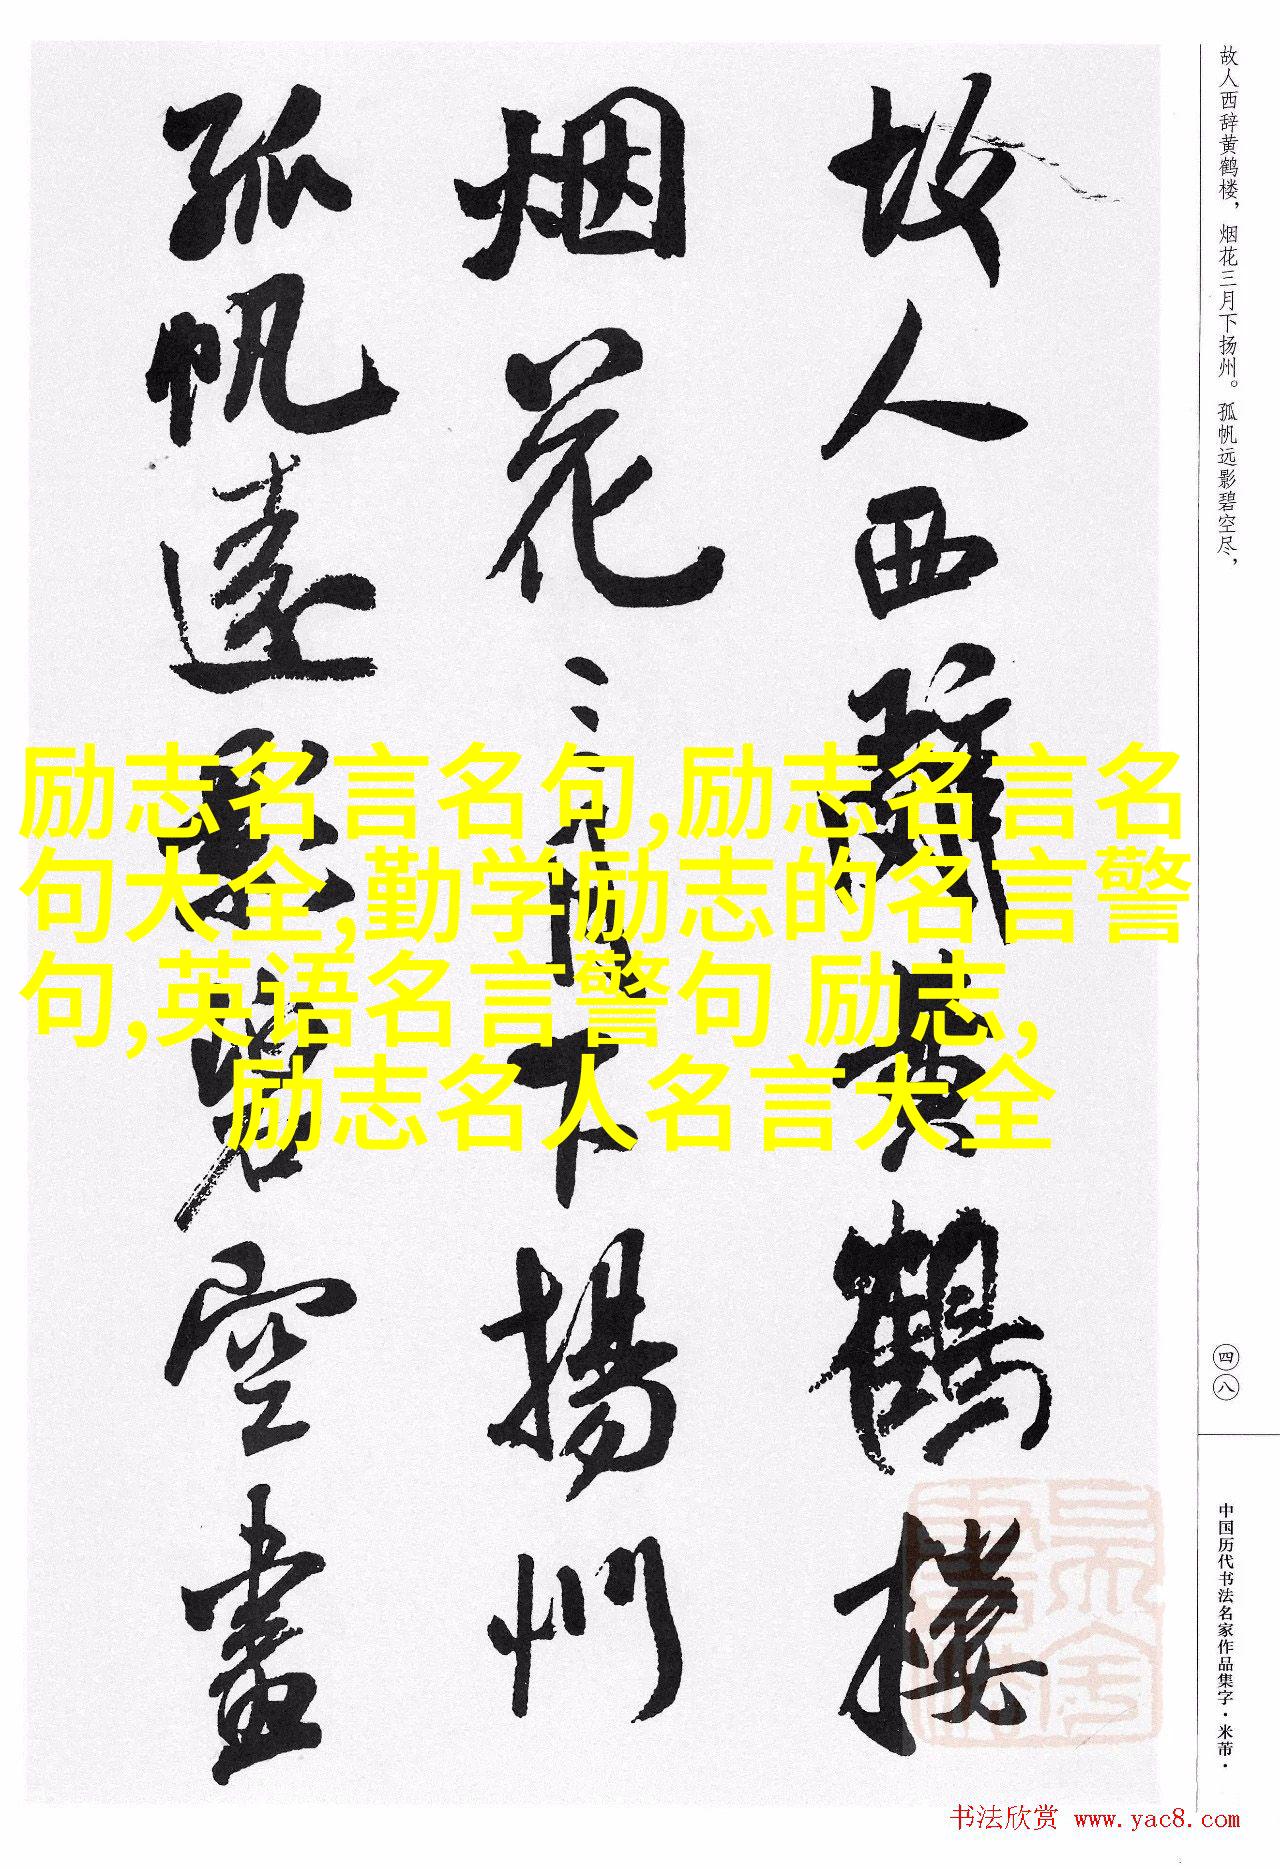 故人西辞黄鹤楼，烟花三月下扬州。孤帆远影碧空尽，
故人西辭黄鶴楼
烟花三月下揚州
孤帆遠影碧空盡
励志名言名句,励志名言名
句大全,勤学励志的名言警
句,英语名言警句 励志,
励志名人名言大全
四八
中国历代书法名家作品集字·米芾·
书法欣赏 www.yac8.com